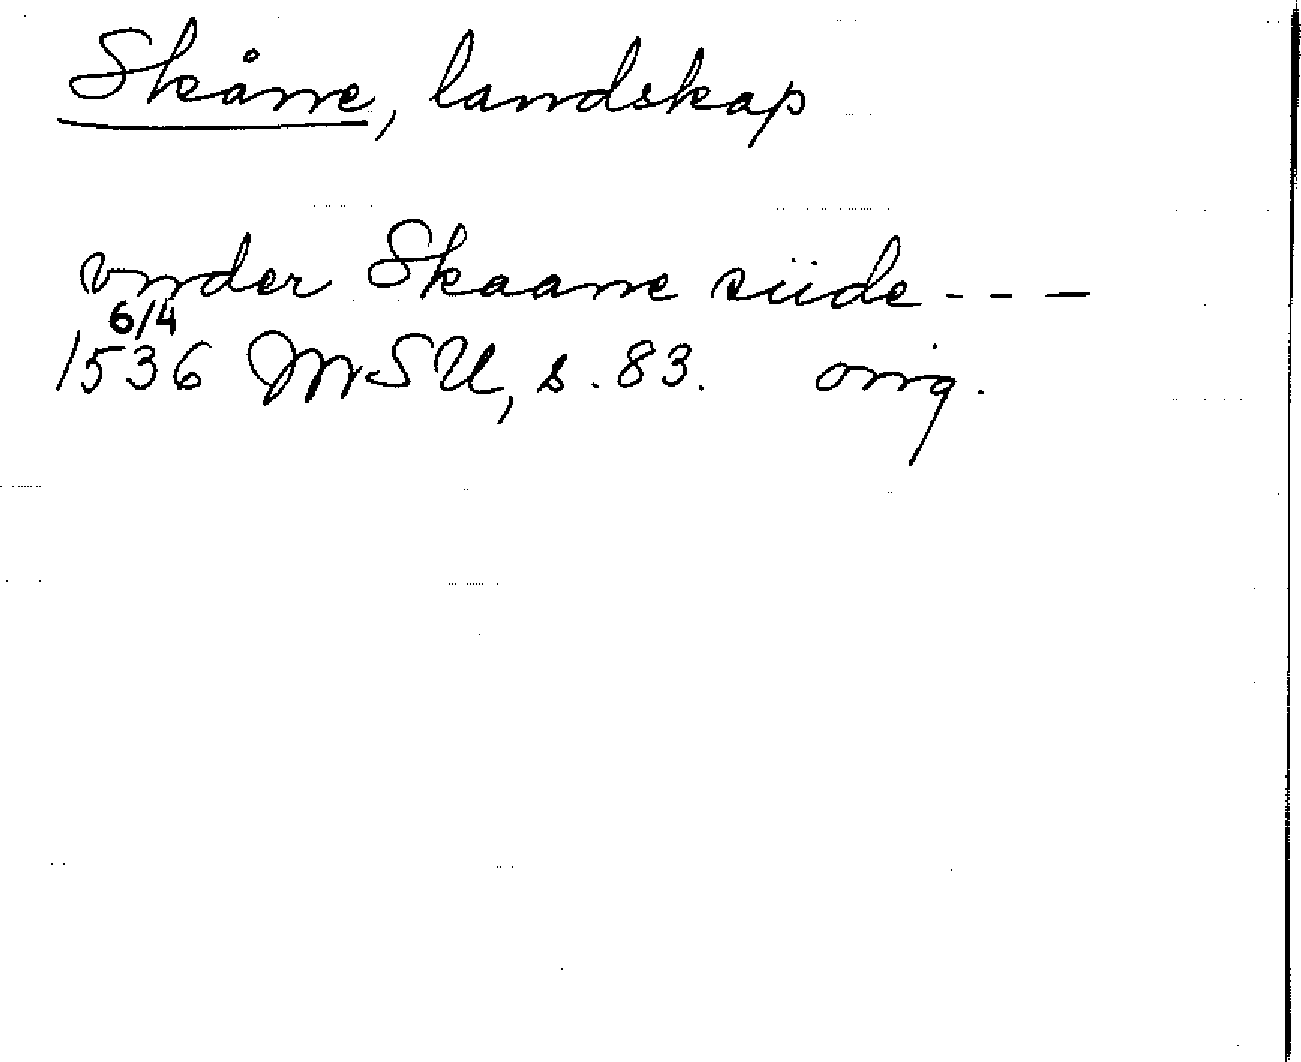 Skåne, landskap
vnder Skaane siide - - -
6/4
1536 MSU, s. 83. orig.